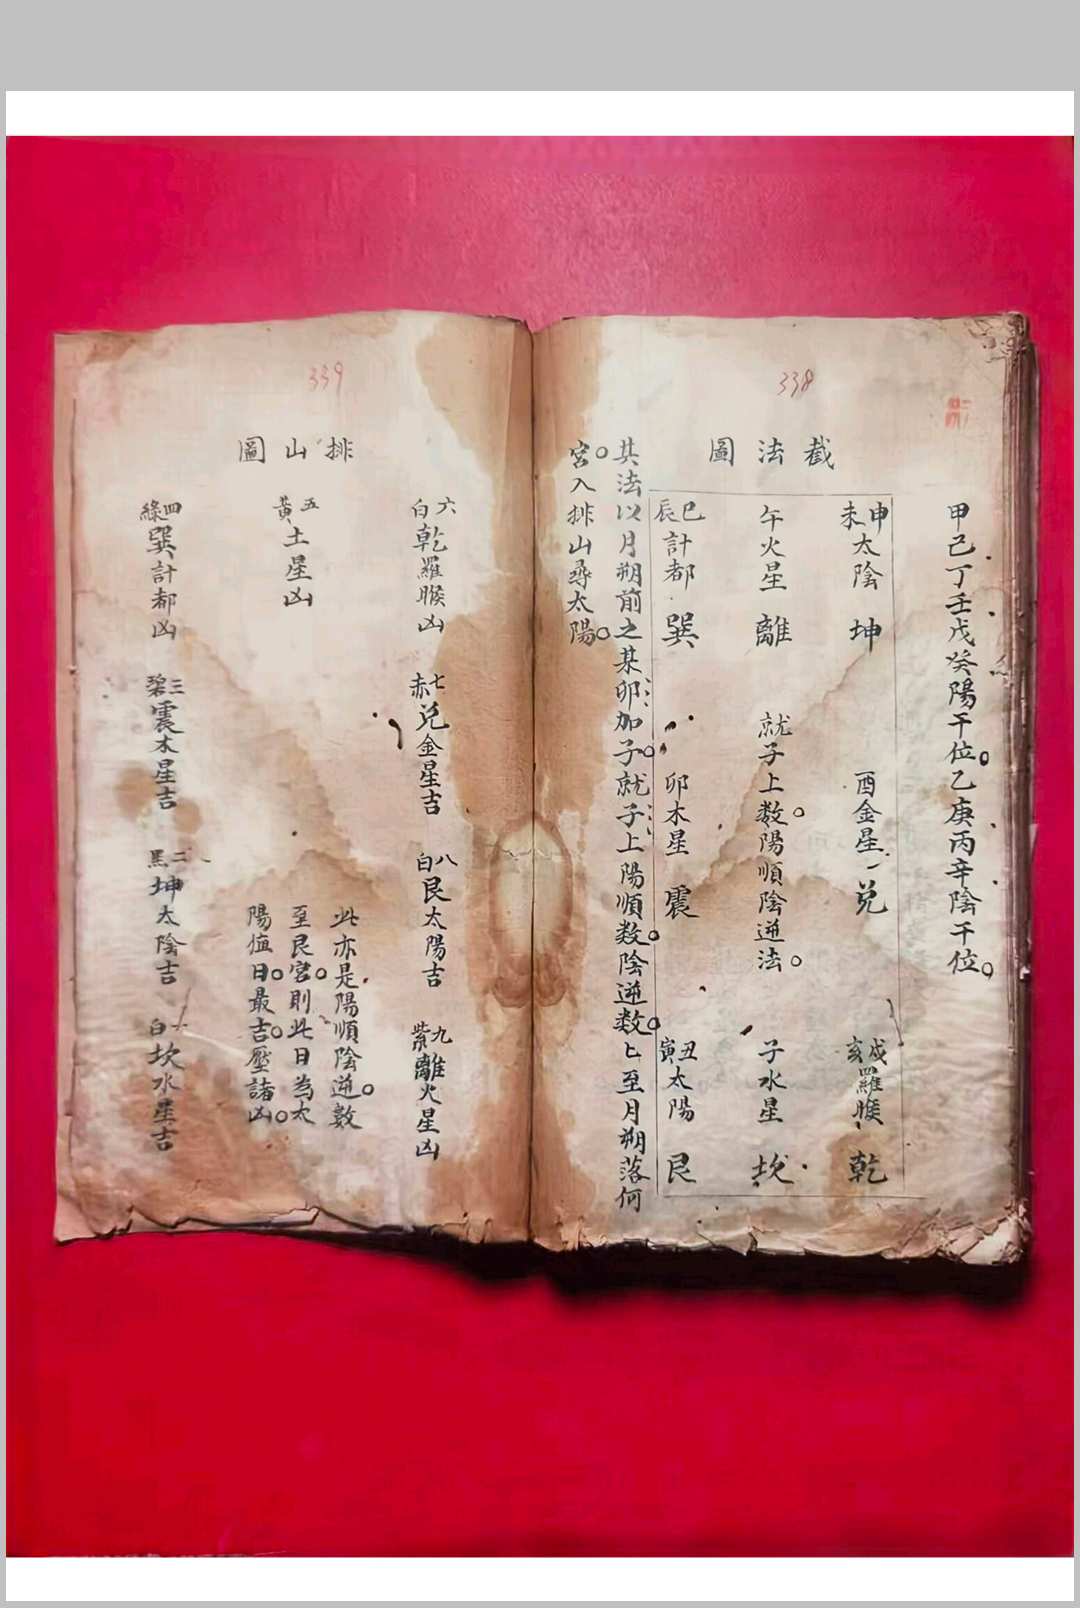 338
甲己丁壬戊癸陽干位。乙庚丙辛陰干位。
截法圖
申未太陰 坤
酉金星 兌
戌亥羅睺 乾
午火星 離
就子上数。陽順陰逆法。
子水星 坎
巳辰計都 巽
卯木星 震
丑寅太陽 艮
其法以月朔前之某卯加子。就子上陽順数。陰逆数。匕至月朔落何
宮。入排山尋太陽。
339
排山圖
六白乾羅睺凶
七赤兌金星吉
八白艮太陽吉
九紫離火星凶
五黃土星凶
此亦是陽順陰逆。數
至艮宮。則此日為太
陽值日。最吉。壓諸凶。
四綠巽計都凶
三碧震木星吉
二黑坤太陰吉
一白坎水星吉